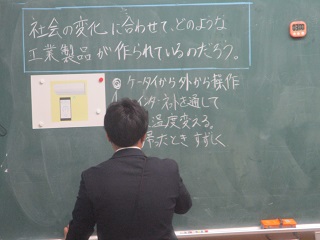 社会の変化に合わせて、どのような
工業製品が作られているのだろう。
ケータイから外から操作
インターネットを通して
温度変える。
来たとき すずしく